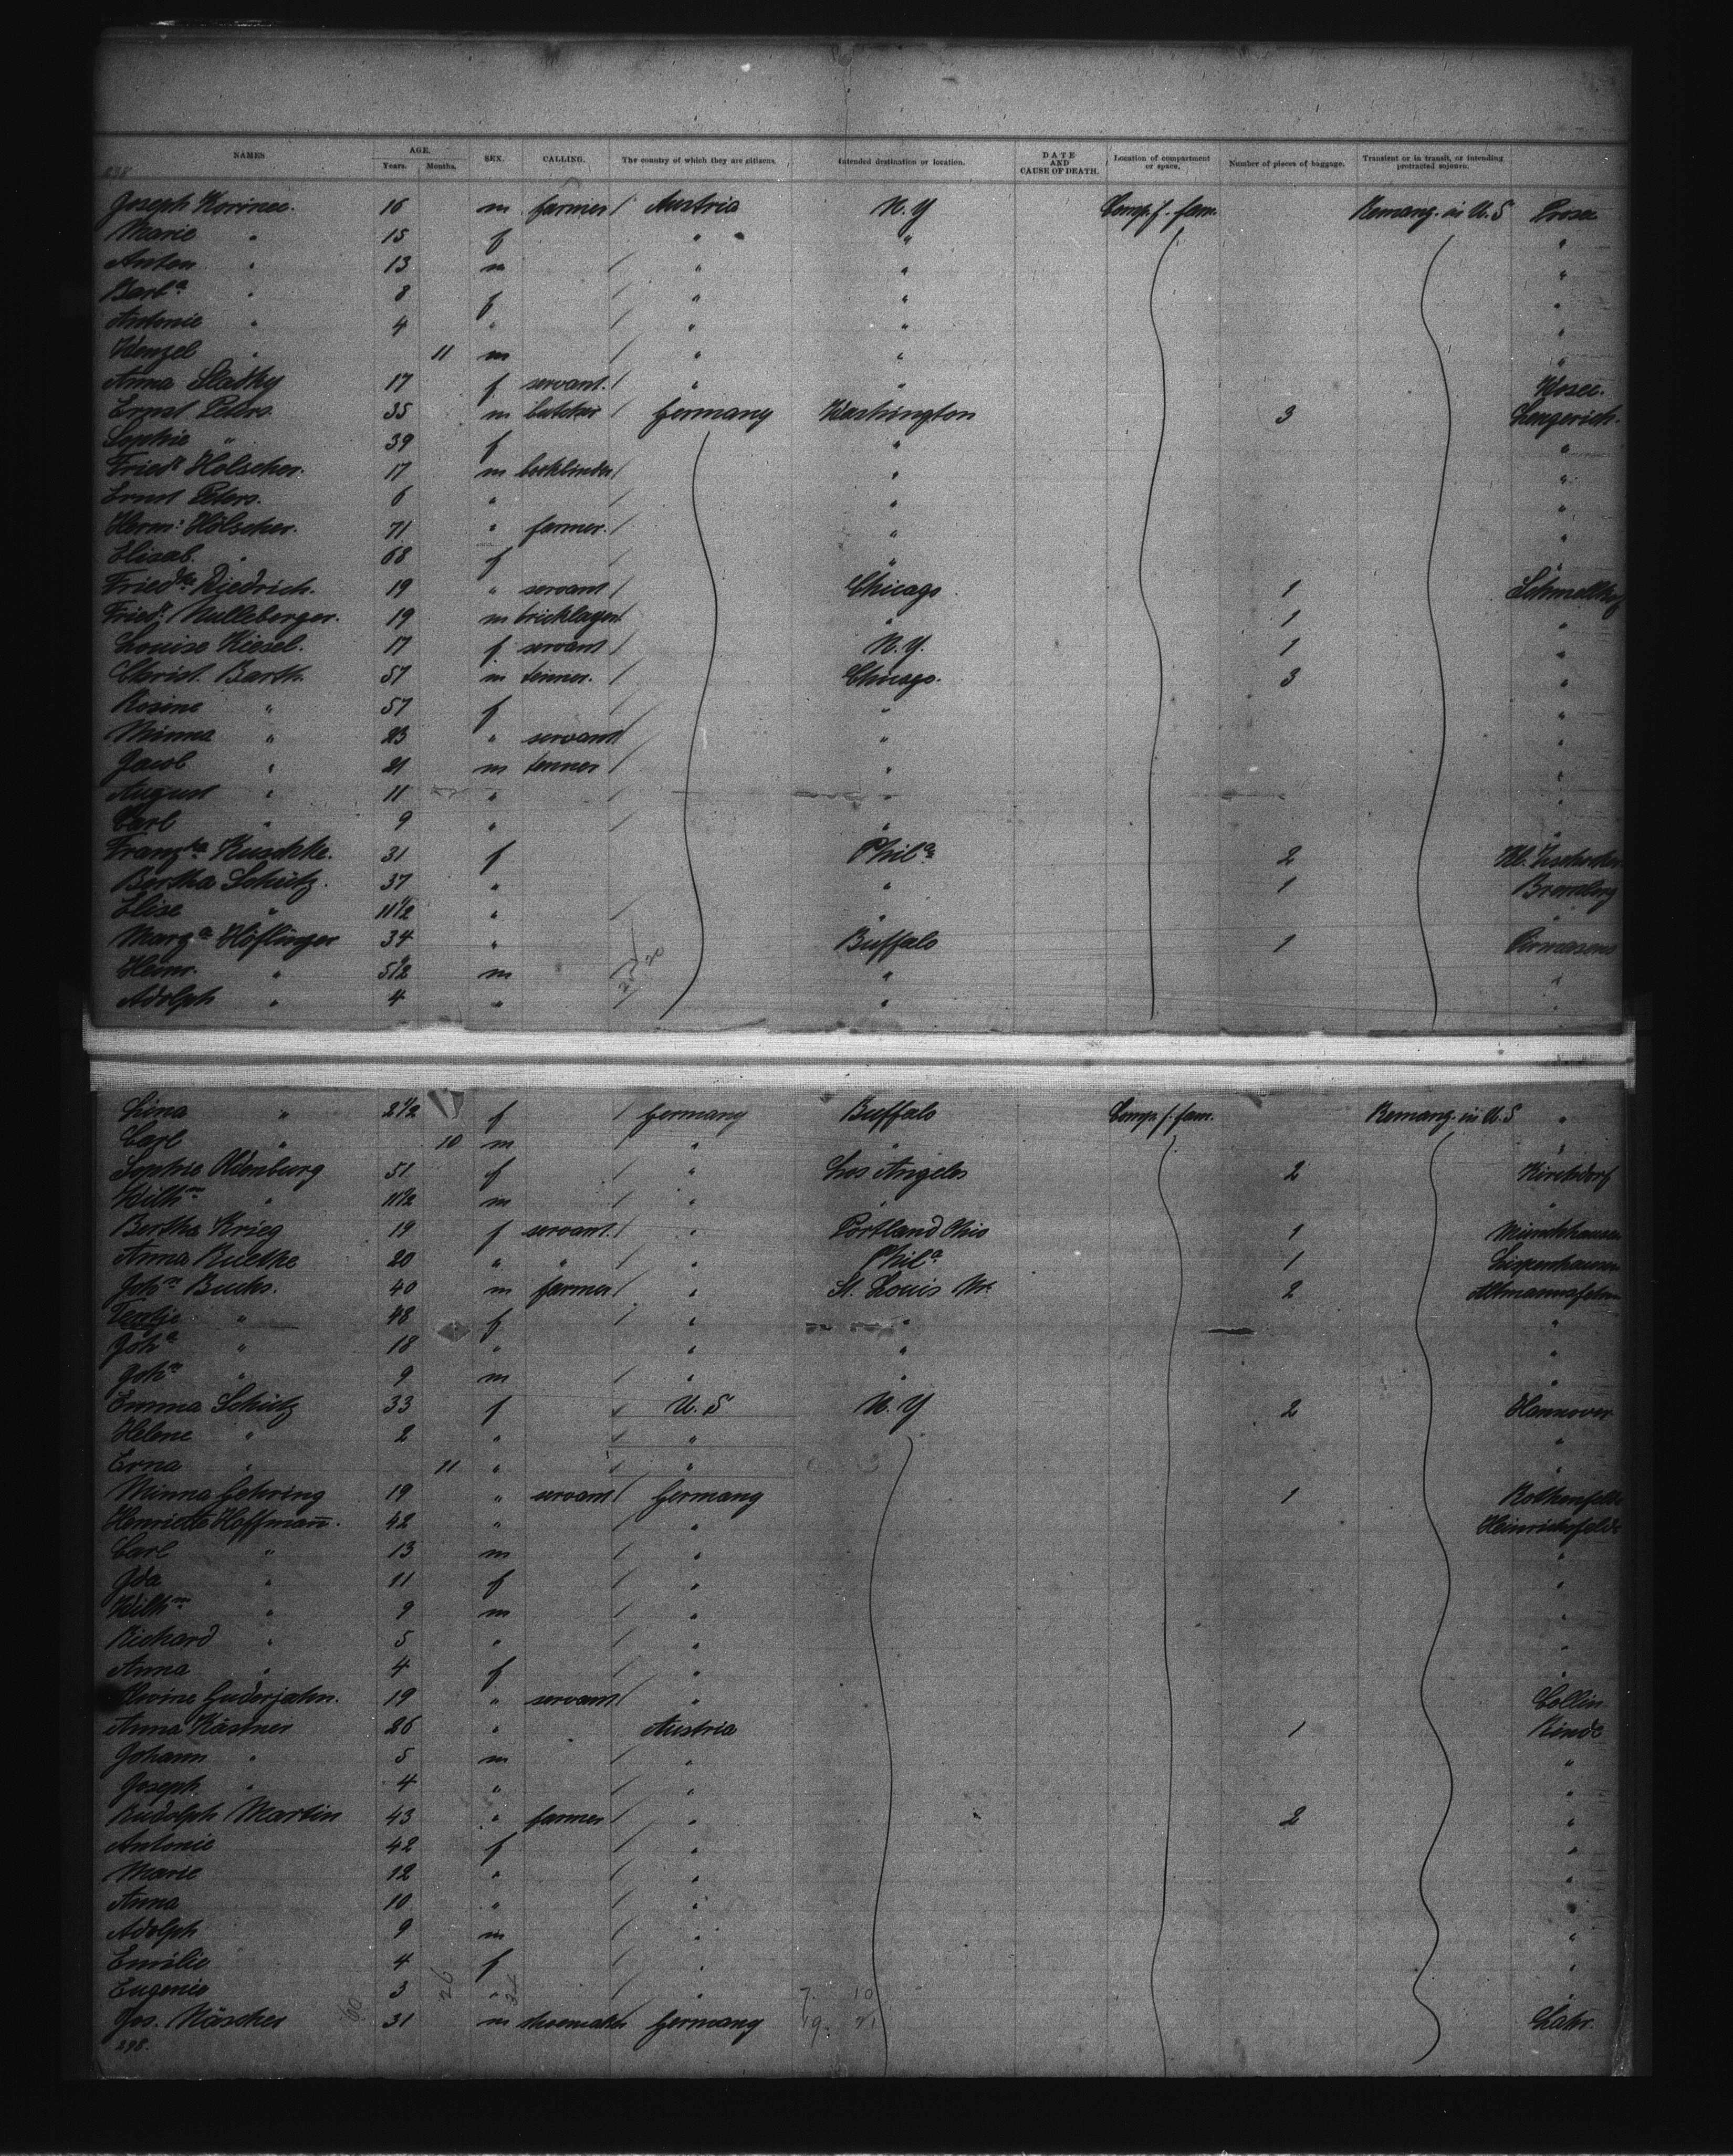 NAMES AGE. Years. Months. SEX. CALLING. The country of which they are citizens. Intended destination or location. DATE AND CAUSE OF DEATH. Location of compartment or space. Number of pieces of baggage. Transient or in transit, or intending protracted sojourn.
238
Joseph Korinec. 16 m farmer / Austria N.Y Comp. f. fam. Remang. in U.S Prosec
Marie " 15 f " " "
Anton " 13 m / " " "
Barbª " 8 f / " " "
Antonie " 4 " / " " "
Wenzel " 11 m / " " "
Anna Sladky 17 f servant. / " " Wosec.
Ernst Peters. 35 m butcher / Germany Washington 3 Lengerich.
Sophie " 39 f " "
Friedr Holscher. 17 m bookbinder / " "
Ernst Peters. 6 " / " "
Herm: Hölscher. 71 " farmer. / " "
Elisab. " 68 f / " "
Friedke Diedrich. 19 " servant / Chicago 1
Friedr. Nulleberger. 19 m bricklayer / " 1 "
Louise Kiesel. 17 f servant / N.Y. 1 "
Christ. Barth. 57 m tinner. / Chicago. 3 "
Rosine " 57 f / " "
Minna " 23 " servant / " "
Jacob " 21 m tenner / " "
August " 11 " / " "
Carl " 9 " / " "
Franzka Kuschke. 31 f Philª 2
Bertha Schütz. 37 " " 1 Bromberg
Elise " 11½ " / " "
Margª Höflinger 34 " Buffalo 1 Pirmasens
Heinr. " 5½ m / " "
Adolph " 4 " / " "
Lina " 2½ f / Germany Buffalo Comp. f. fam. Remang. in U.S "
Carl " 10 m " " "
Sophie Oldenburg 51 f / " Los Angeles 2 Kirchdorf
Wilhm " 11½ m / " " "
Bertha Krieg 19 f servant. / " Portland Ohio 1 Münchhausen
Anna Kuethe 20 " " / " Philª 1 Lispenhausen
John Buchs. 40 m farmer / " St. Louis Mo 2
" 48 f / " " "
Johª " 18 " " " "
John " 9 m / " " "
Emma Schütz 33 f / U.S N.Y 2 Hannover
Helene " 2 " / " "
Erna " 11 " / " "
Minna Gehring 19 " servant / Germany 1 Rothenfelde
Henriette Hoffmann. 42 " / " Heinrichsfelde
Carl " 13 m / " "
Ida " 11 f / " "
Wilhm " 9 m / " "
Richard " 5 " / " "
Anna " 4 f / " "
Guderjahn. 19 " servant / " Collin
Anna Kästner 26 " Austria 1
Johann " 5 m / " "
Joseph " 4 " / " "
Rudolph Martin 43 " farmer / " 2 "
Antonie 42 f / " "
Marie 12 " / " "
Anna 10 " / " "
Adolph 9 m / " "
Emilie 4 f / " "
Eugenie 3 " / " "
Jos. Näscher 31 m shoemaker Germany Lahr.
298.